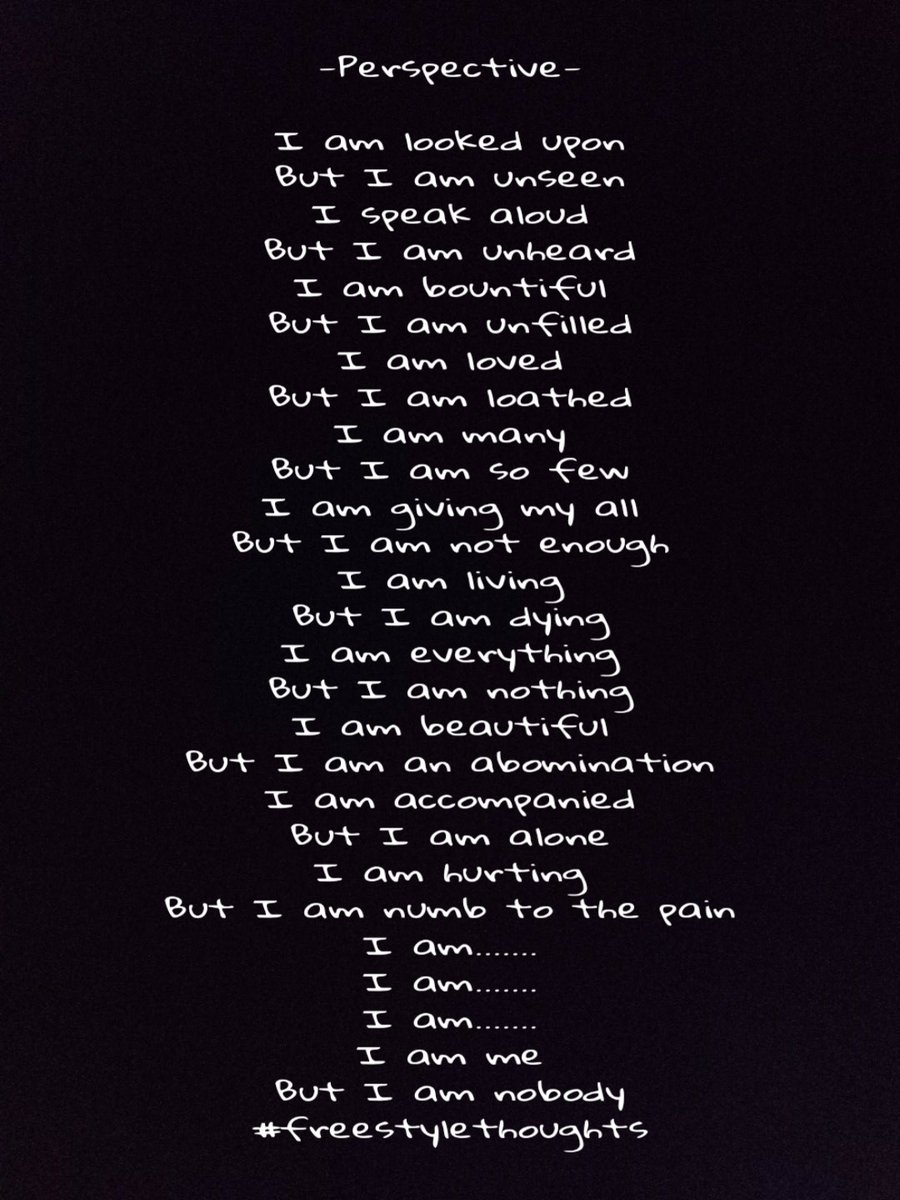 -Perspective-
I am looked upon
But I am unseen
I speak aloud
But I am unheard
I am bountiful
But I am unfilled
I am loved
But I am loathed
I am many
But I am so few
I am giving my all
But I am not enough
I am living
But I am dying
I am everything
But I am nothing
I am beautiful
But I am an abomination
I am accompanied
But I am alone
I am hurting
But I am numb to the pain
I am.......
I am.......
I am.......
I am me
But I am nobody
#freestylethoughts